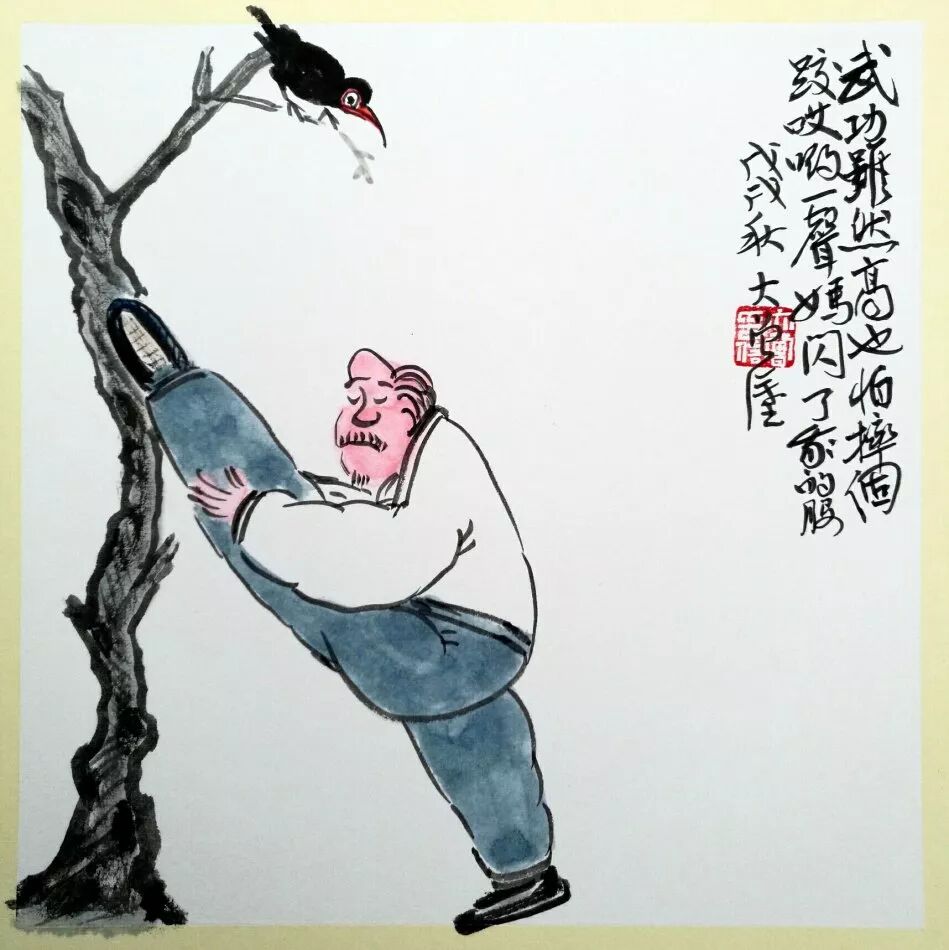 武功雖然高也怕摔個
跤哎喲一聲媽閃了我的腰
戊戌秋大